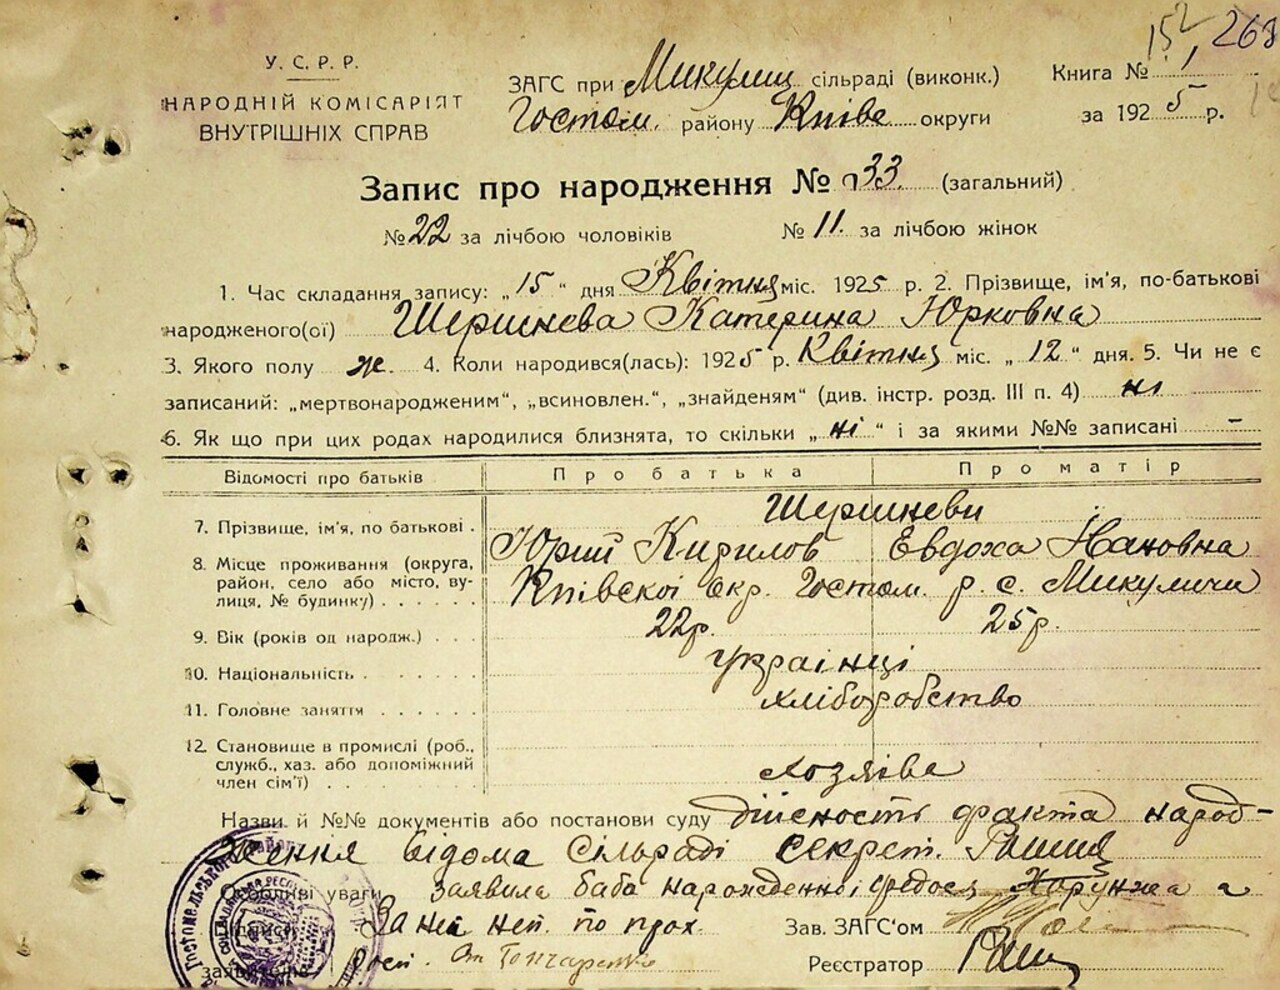 152, 268
У. С. Р. Р.
НАРОДНІЙ КОМІСАРІЯТ
ВНУТРІШНІХ СПРАВ
ЗАГС при Микулиц сільраді (виконк.)
Гостом. району Київе округи
Книга № 1
за 1925 р.
Запис про народження № 33. (загальний)
№ 22 за лічбою чоловіків № 11. за лічбою жінок
1. Час складання запису: „15“ дня Квітня міс. 1925 р. 2. Прізвище, ім'я, по-батькові
народженого(ої) Шершнева Катерина Юрковна
3. Якого полу ж. 4. Коли народився(лась): 1925 р. Квітня міс. „12“ дня. 5. Чи не є
записаний: „мертвонародженим“, „всиновлен.“, „знайденям“ (див. інстр. розд. III п. 4) ні
6. Як що при цих родах народилися близнята, то скільки „ні“ і за якими №№ записані –
Відомості про батьків Про батька Про матір
7. Прізвище, ім'я, по батькові . Шершневи
Юрий Кирилов Евдоха Ивановна
8. Місце проживання (округа, район, село або місто, вулиця, № будинку) . . . . . Київскої окр. Гостом. р. с. Микуличи
9. Вік (років од народж.) . . . 22р. 25р.
10. Національність . . . . . . українці
11. Головне заняття . . . . . . хліборобство
12. Становище в промислі (роб., служб., хаз. або допоміжний член сім'ї) . . . . . . хозяіве
Назви й №№ документів або постанови суду дійсность факта народ-
ження відома сільраді секрет.
Особливі уваги заявила баба нарожденної Хорунжа а
За неї неп. по прох.
Підписи
заявителів росп. Гончаренко
Зав. ЗАГС'ом
Реєстратор